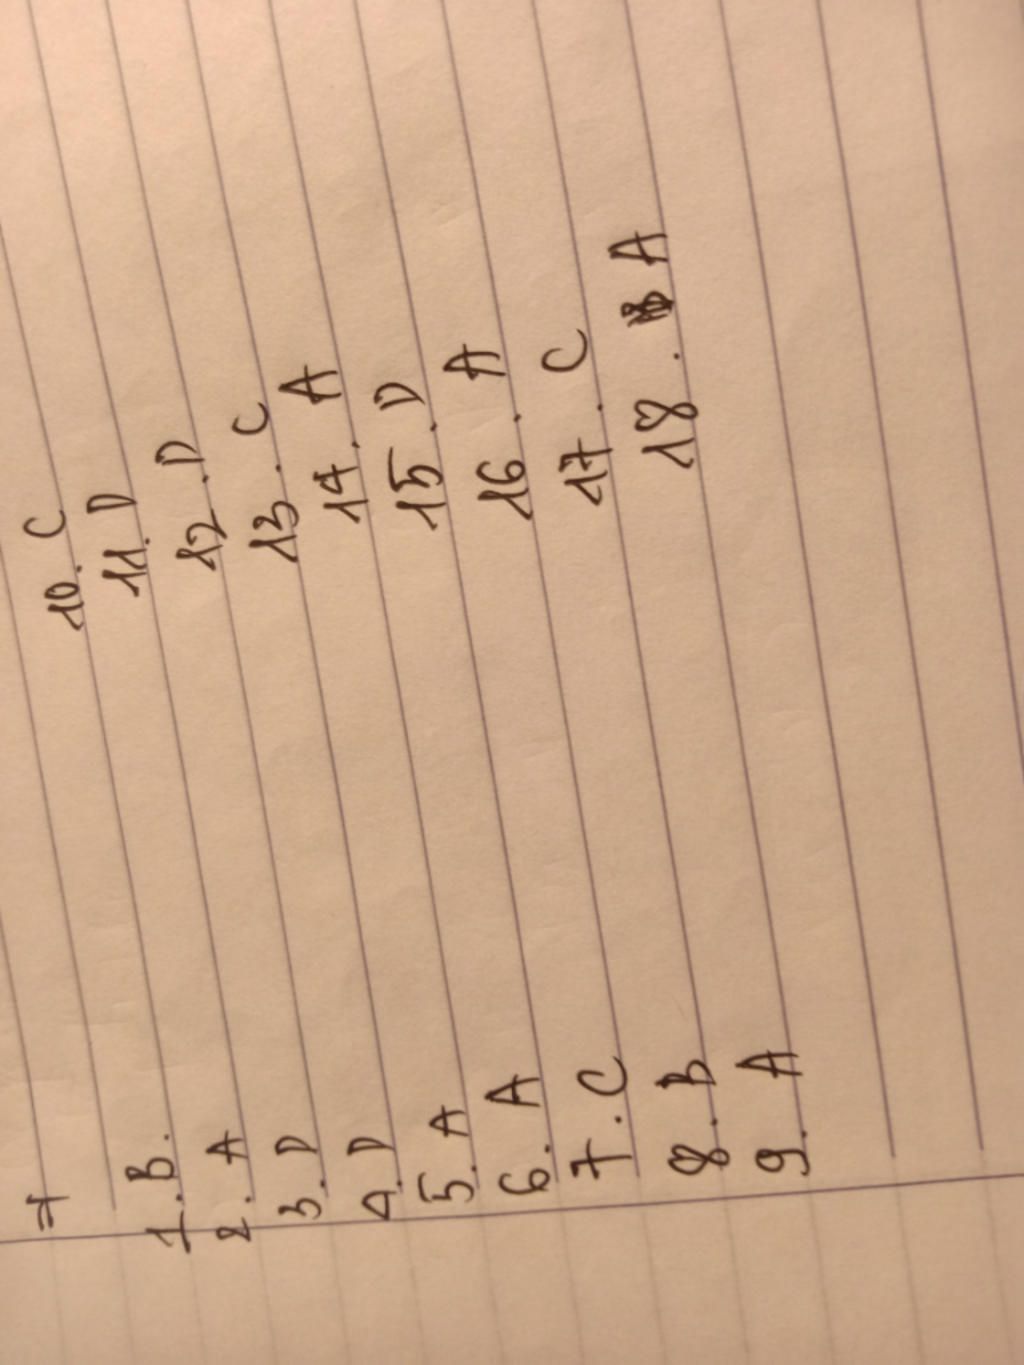 ⇒
1. B.
2. A
3. D
4. D
5. A
6. A
7. C
8. B
9. A
10. C
11. D
12. D
13. C
14. A
15. D
16. A
17. C
18. A